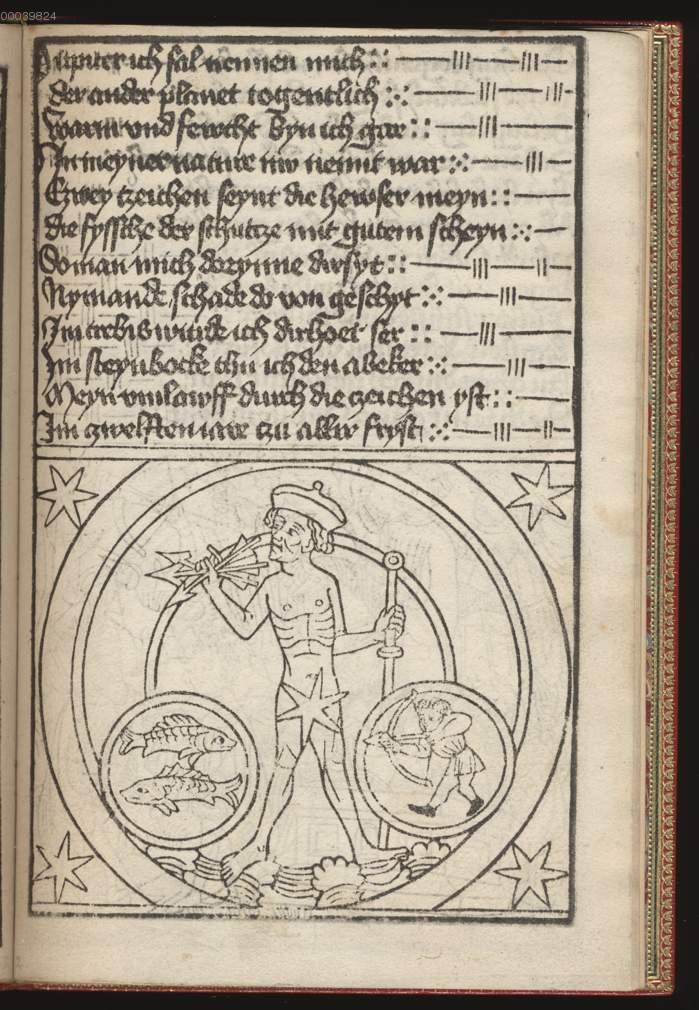 00039824
Jupiter ich sal nennen mich ::
der ander planet togentlich :·:
Warm und fewcht byn ich gar ::
In meyner nature nw nemt war :·:
Czwey tzeichen seynt die hewser meyn ::
die fyssche der schutcze mit gutem scheyn :·:
So man mich dorynne dirsyt ::
Nymande schade do von geschyt :·:
Im crebis wurde ich dirhoet ser ::
Im steynbocke thu ich den abeker :·:
Meyn umlawff durch die czeichen yst ::
Im czwelften iare tzu aller fryst :·: